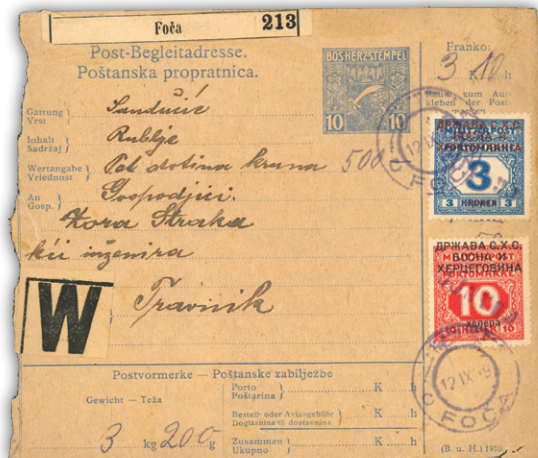 Foča 213
Post-Begleitadresse.
Poštanska propratnica.
BOSHERZ STEMPEL
10 10
Franko:
3 K 10 h
Raum zum Auf-
kleben der Post-
Gattung
Vrst
Sandučić
Inhalt
Sadržaj
Rublje
Wertangabe
Vriednost
Pet stotina kruna 500
An
Gosp.
Gospodjici
Zora Straka
kći inženira
Travnik
W
ДРЖАВА С.Х.С.
БОСНА И
ХЕРЦЕГОВИНА
3
3 KRONEN 3
ДРЖАВА С.Х.С.
БОСНА И
ХЕРЦЕГОВИНА
10
хелера
10
12 IX 19
FOČA
12 IX 19
FOČA
Postvormerke — Poštanske zabilježbe
Gewicht — Teža
3 kg 200 g
Porto
Poštarina
K h
Bestell- oder Avisogebühr
Doglasnina ili dostavnina
K h
Zusammen
Ukupno
K h
(B. u. H.)